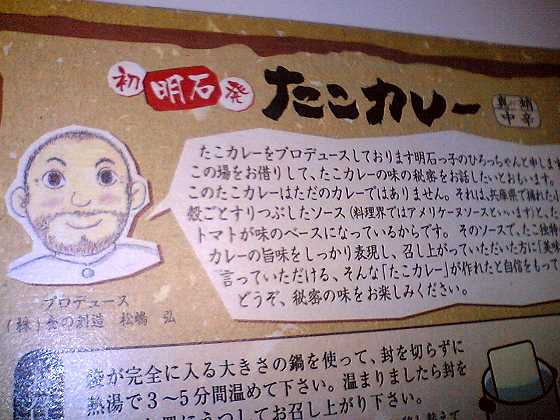 初 明石 発 たこカレー
たこカレーをプロデュースしております明石っ子のひろっちゃんと申しま
この場をお借りして、たこカレーの味の秘密をお話したいとおもいます。
このたこカレーはただのカレーではありません。それは、兵庫県で捕れた小
殻ごとすりつぶしたソース(料理界ではアメリケーヌソースといいます)と、
トマトが味のベースになっているからです。そのソースで、たこ独特
カレーの旨味をしっかり表現し、召し上がっていただいた方に「美味
言っていただける、そんな「たこカレー」が作れたと自信をもって
どうぞ、秘密の味をお楽しみください。
プロデュース
(株)食の創造 松嶋 弘
袋が完全に入る大きさの鍋を使って、封を切らずに
熱湯で3〜5分間温めて下さい。温まりましたら封を
にうつしてお召し上がり下さい。